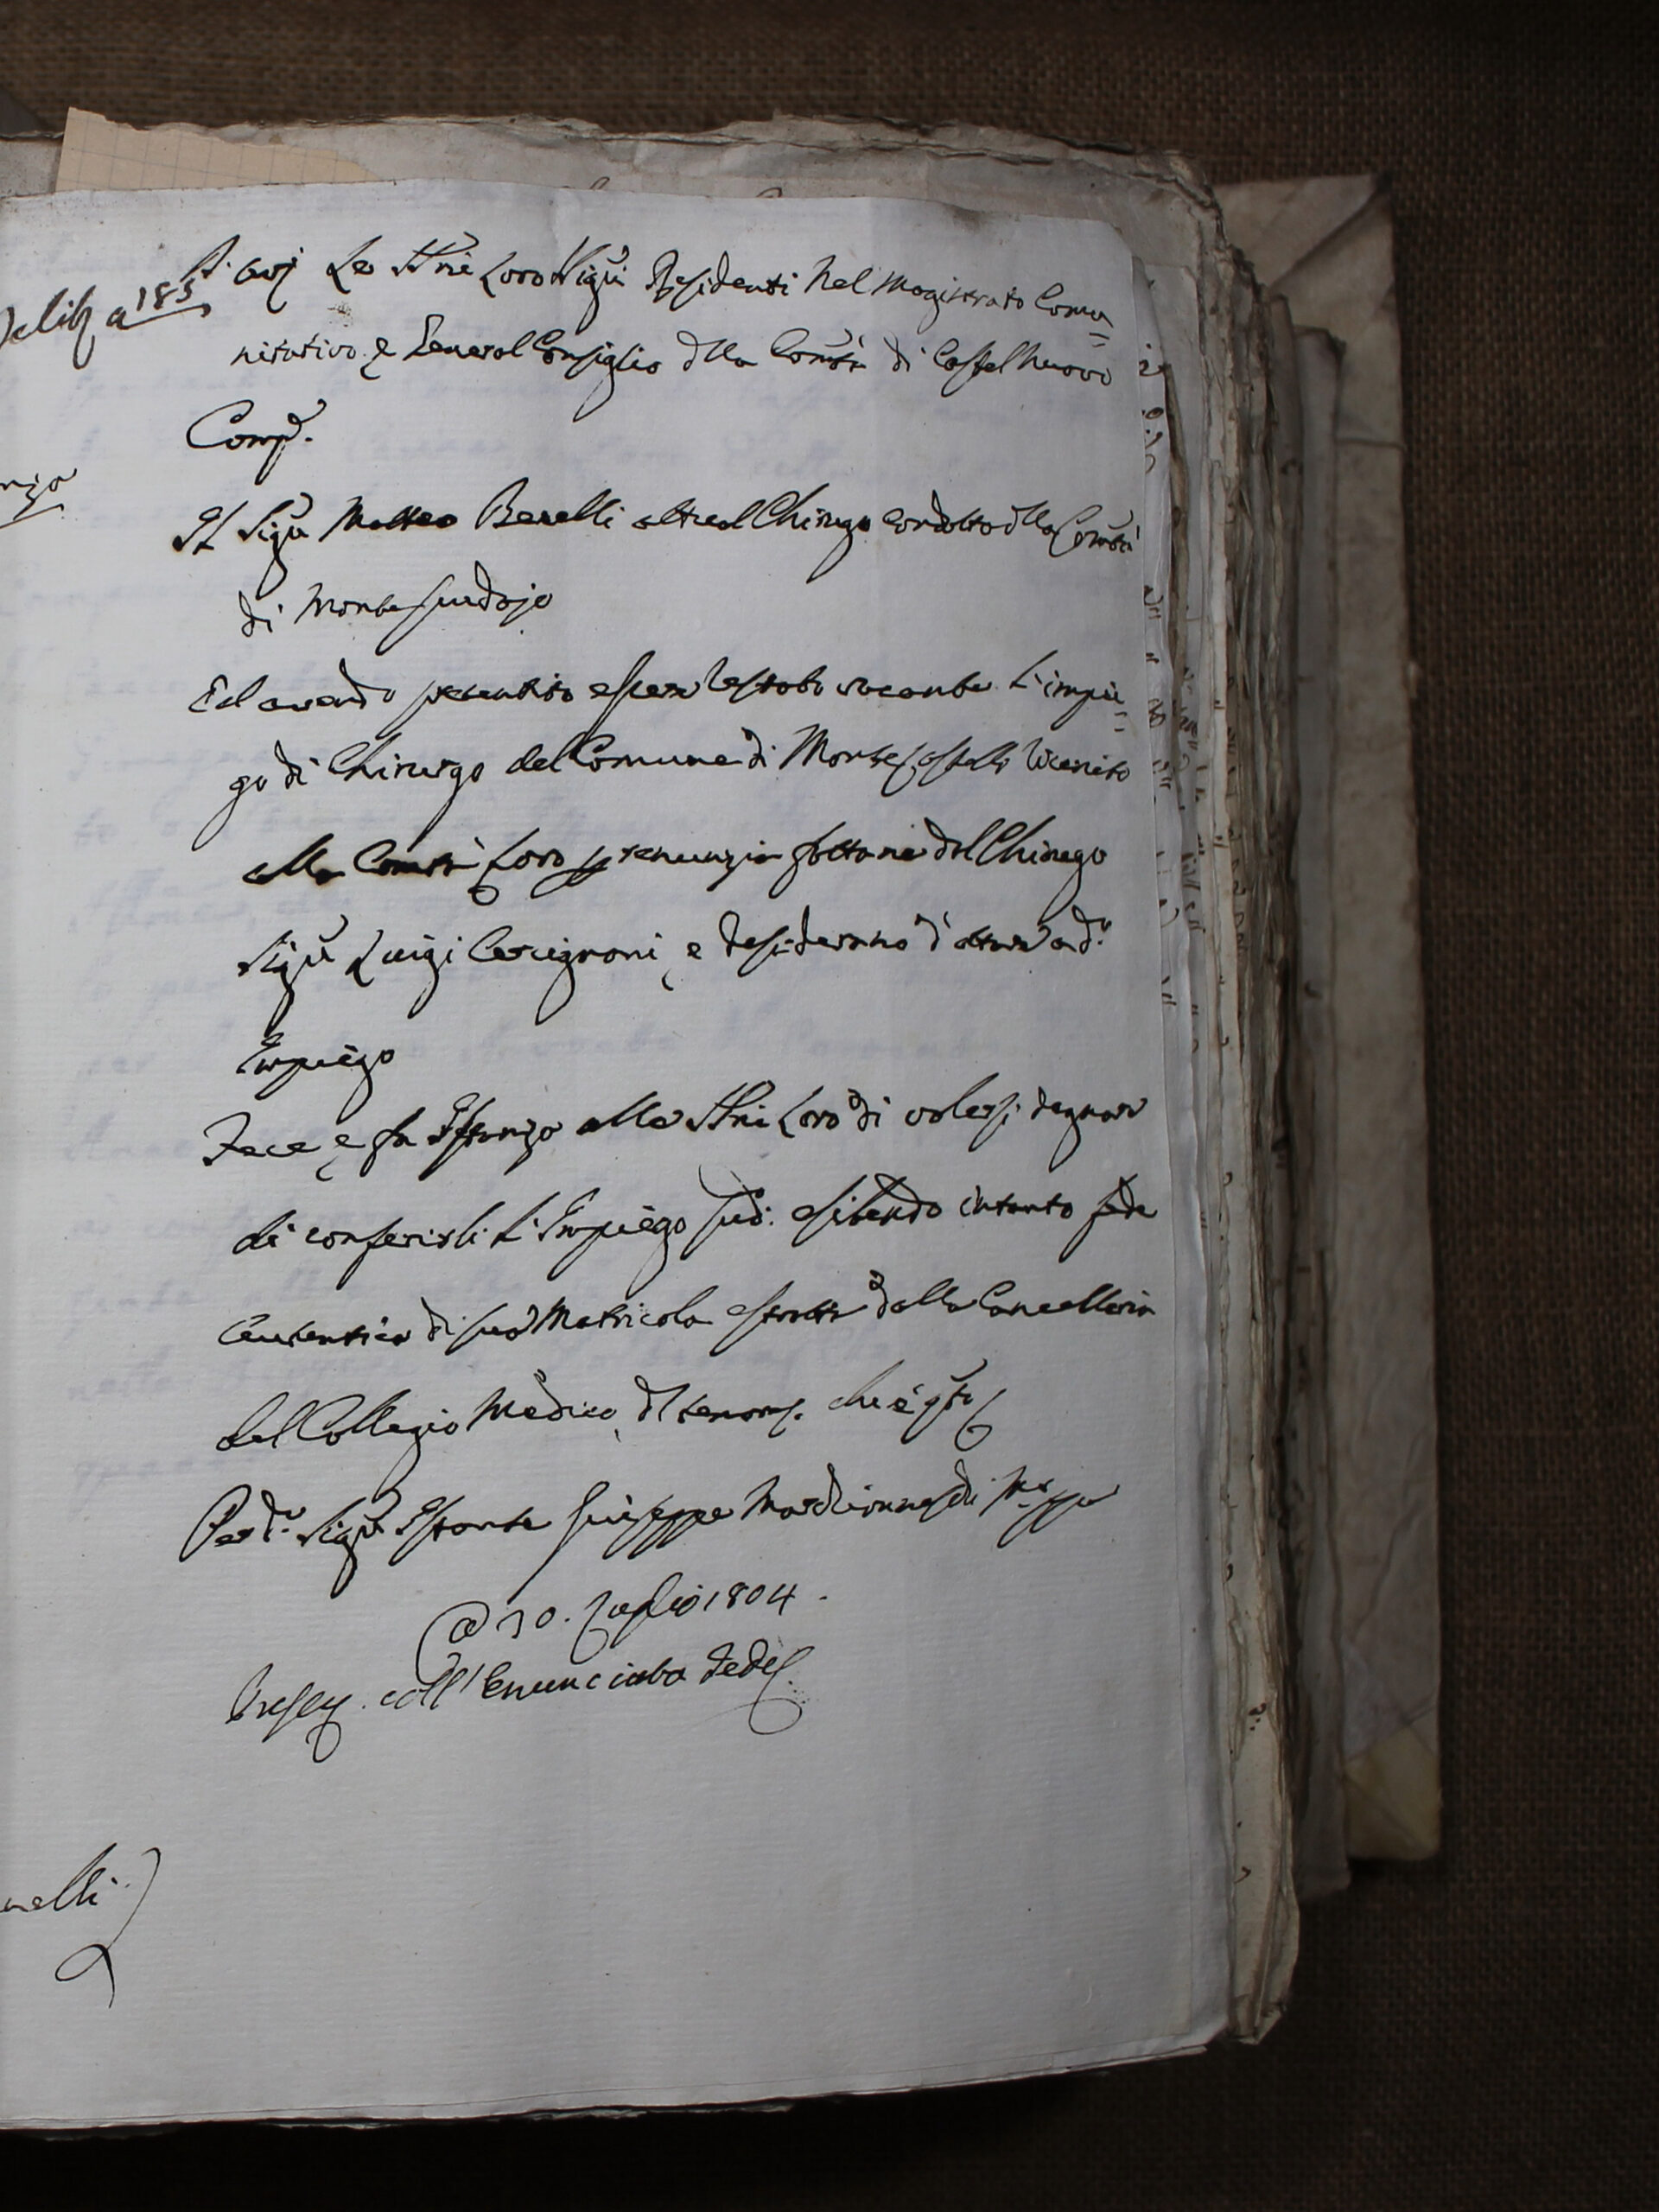 A. avj Le Ill:rie Loro Sigri Residenti Nel Magistrato Comu=
nitativo e General Consiglio dlla Comtà di Castel nuovo
Comp:
Il Sigre Matteo Benelli altro Chirugo condotto dlla Comtà
di Montescudajo
Ed avendo presentito essere restato vacante L'impie=
go di Chirurgo del Comune di Montecastelli riunito
alla Comtà Loro p renunzia fattane dal Chirugo
Sigre Luigi e desiderano d'attend:
Impiego
Fece, e fa Istanza alle Ill:rie Loro di volersi degnare
di conferirli L'Impiego sud: esibendo intanto fede
Autentica di sua Matricola estratta dalla Cancelleria
del Collegio Medico, dl tenore che è qsto
Per d: Sigre Istante Giuseppe di
a 30. Luglio 1804.
coll'Enunciata Fede
Deliba a 185
nza
nelli